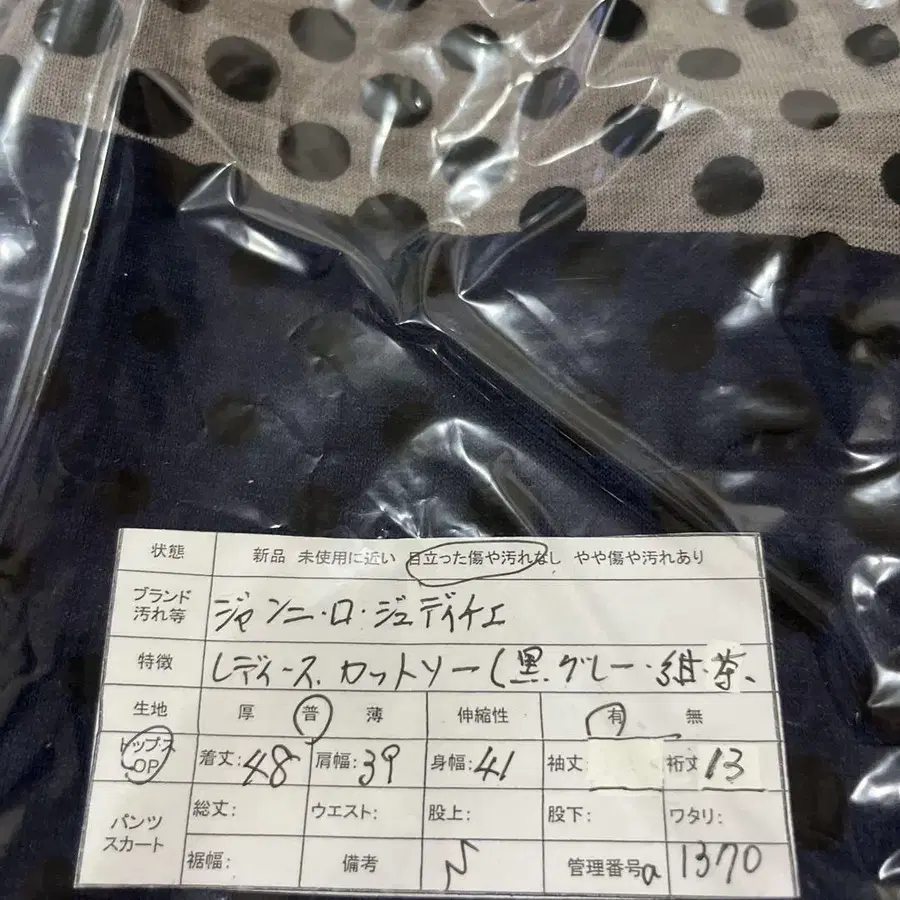 状態 新品 未使用に近い 目立った傷や汚れなし やや傷や汚れあり
ブランド
汚れ等 ジャンニ・ロ・ジュディチェ
特徴 レディース.カットソー(黒.グレー・紺.茶、
生地 厚 普 薄 伸縮性 有 無
トップス
OP 着丈:48 肩幅:39 身幅:41 袖丈 裄丈13
パンツ
スカート 総丈: ウエスト: 股上: 股下: ワタリ:
裾幅: 備考 管理番号a 1370